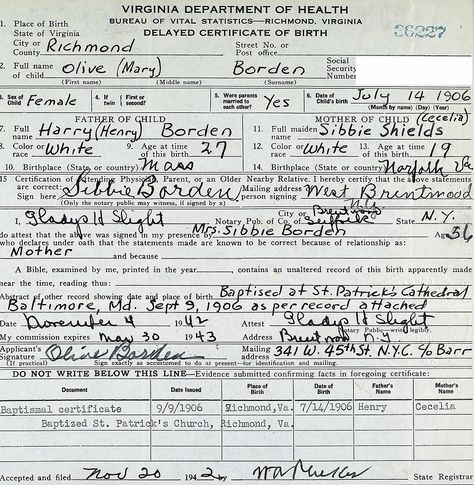 VIRGINIA DEPARTMENT OF HEALTH
BUREAU OF VITAL STATISTICS—RICHMOND, VIRGINIA
DELAYED CERTIFICATE OF BIRTH
36227
1. Place of Birth
State of Virginia
City or County Richmond Street No. or Post office
2. Full name of child Olive (Mary) Borden Social Security Number
(First name) (Middle name) (Surname)
3. Sex of Child Female 4. If twin? First or second? 5. Were parents married to each other? Yes 6. Date of Child's birth July 14 1906
(Month by name) (Day) (Year)
FATHER OF CHILD MOTHER OF CHILD (Cecelia)
7. Full name Harry (Henry) Borden 11. Full maiden name Sibbie Shields
8. Color or race White 9. Age at time of this birth 27 12. Color or race White 13. Age at time of this birth 19
10. Birthplace (State or country) Mass 14. Birthplace (State or country) Norfolk Va
15 Certification of Attending Physician, Parent, or an Older Nearby Relative, I hereby certify that the above statements are correct:
Sign here Sibbie Borden Mailing address of person signing West Brentwood
(Only notary public may witness, if signed by x) N.Y.
I, Gladys H Slight Notary Pub. of City or County Brentwood Suffolk State N.Y.
do attest that the above was signed in my presence by Mrs. Sibbie Borden Age 56
who declares under oath that the statements made are known to be correct because of relationship as:
Mother and because
A Bible, examined by me, printed in the year contains an unaltered record of this birth apparently made
near the time, reading thus:
Abstract of other record showing date and place of birth Baptised at St. Patrick's Cathedral
Baltimore, Md. Sept 9, 1906 as per record attached
Date November 4 1942 Attest Gladys H Slight
Notary Public—write legibly.
My commission expires May 30 1943 Address Brentwood N.Y
Applicant's own Signature Olive Borden Mailing Address 341 W. 45th St. N.Y.C. c/o Barr
(If practical) Sign exactly as accustomed to do at present—for identification and mailing.
DO NOT WRITE BELOW THIS LINE—Evidence submitted confirming facts in foregoing certificate:
Document Date Issued Place of Birth Date of Birth Father's Name Mother's Name
Baptismal certificate 9/9/1906 Richmond, Va. 7/14/1906 Henry Cecelia
Baptized St. Patrick's Church, Richmond, Va.
Accepted and filed Nov 20 1942, State Registrar